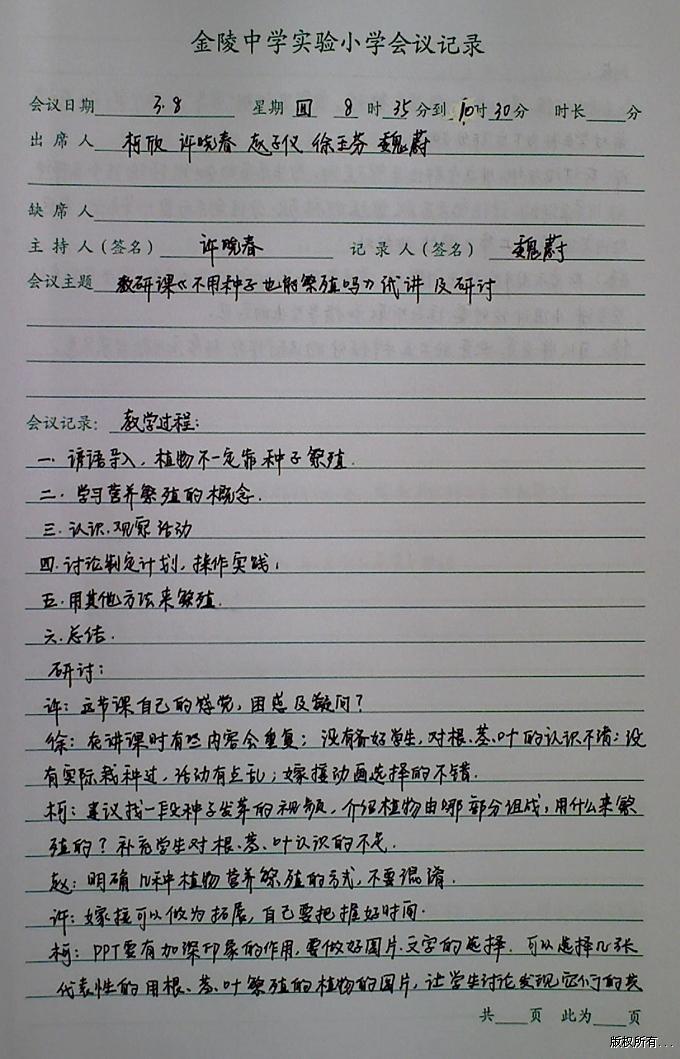 金陵中学实验小学会议记录
会议日期 3.8 星期 四 8 时 35 分到 10 时 30 分 时长 分
出席人 柯欣 许晓春 赵子仪 徐玉芬 魏蔚
缺席人
主持人(签名) 许晓春 记录人(签名) 魏蔚
会议主题 教研课《不用种子也能繁殖吗》试讲及研讨
会议记录: 教学过程:
一. 谚语导入, 植物不一定靠种子繁殖.
二. 学习营养繁殖的概念.
三. 认识.观察活动
四. 讨论制定计划, 操作实践.
五. 用其他方法来繁殖.
六. 总结.
研讨:
许: 这节课自己的感觉, 困惑及疑问?
徐: 在讲课时有些内容会重复; 没有备好学生, 对根、茎、叶的认识不清; 没
有实际栽种过, 活动有点乱; 嫁接动画选择的不错.
柯: 建议找一段种子发芽的视频, 介绍植物由哪部分组成, 用什么来繁
殖的? 补充学生对根、茎、叶认识的不足.
赵: 明确几种植物营养繁殖的方式, 不要混淆.
许: 嫁接可以做为拓展, 自己要把握好时间.
柯: PPT要有加深印象的作用, 要做好图片.文字的选择. 可以选择几张
代表性的用根、茎、叶繁殖的植物的图片, 让学生讨论发现它们的共
共 页 此为 页
版权所有...